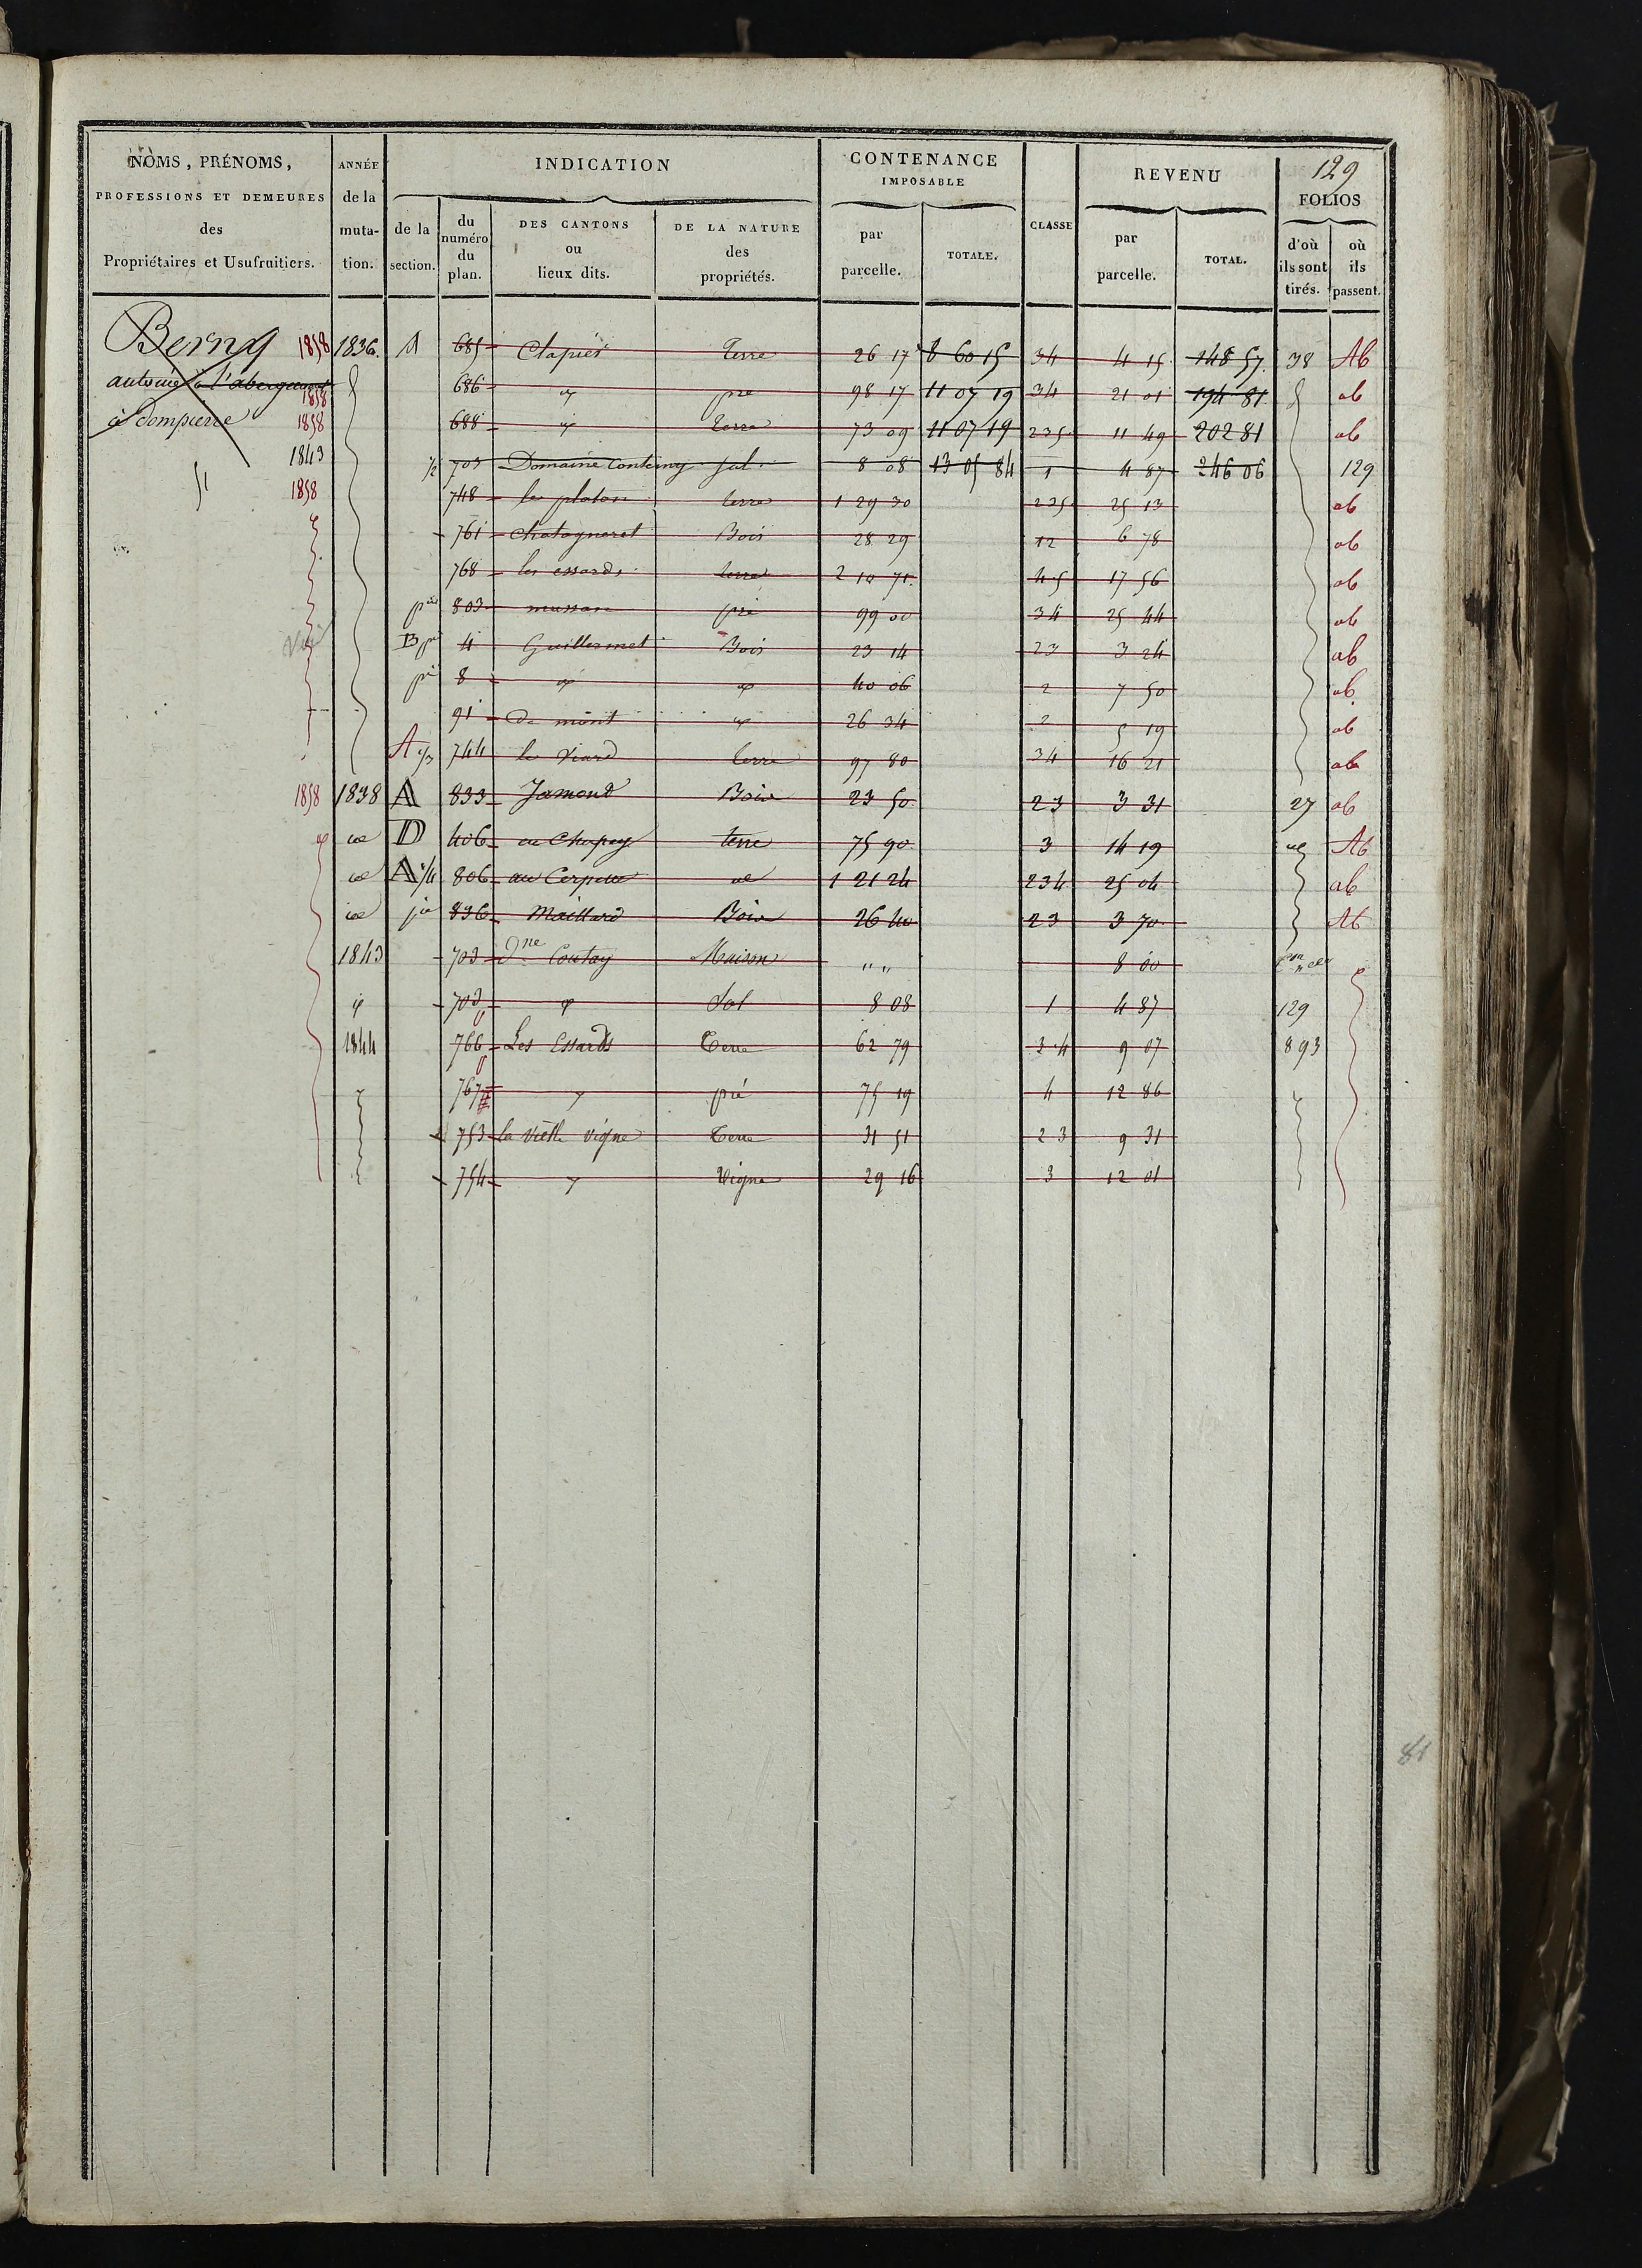 129
NOMS, PRÉNOMS,
PROFESSIONS ET DEMEURES
des
Propriétaires et Usufruitiers.
ANNÉE
de la
muta-
tion.
INDICATION
de la
section.
du
numéro
du
plan.
DES CANTONS
ou
lieux dits.
DE LA NATURE
des
propriétés.
CONTENANCE
IMPOSABLE
par
parcelle.
TOTALE.
CLASSE
REVENU
par
parcelle.
TOTAL.
FOLIOS
d'où
ils sont
tirés.
où
ils
passent.
Berny 1858 1836. A 685 Clapier Terre 26 17 8 60 15 34 4 15 148 57. 38 Ab
antoine à l'abergement 1858 686 pre 98 17 11 07 19 34 21 01 194 81 ab
à Dompierre 1858 688 Terre 73 09 11 07 19 235 11 49 202 81 ab
1843 1/2 703 Domaine Conteny Sol 8 08 13 05 84 1 4 87 246 06 129
1858 748 le platon terre 1 29 30 235 25 13 ab
761 chatagneret Bois 28 29 12 6 78 ab
768 les essards terre 2 10 71. 45 17 56 ab
803 pré 99 00 34 25 44 ab
B 4 Guillermet Bois 23 14 23 3 24 ab
8 40 06 2 7 50 ab
91 de mont 26 34 2 5 19 ab
A 744 le Viard terre 97 80 34 16 21 ab
1858 1838 A 833 Jamond Bois 23 50 23 3 31 27 ab
D 406 en Chapey terre 75 90 3 14 19 Ab
A 1/4 806 au 1 21 24 234 25 04 ab
836 Maillard Bois 26 40 23 3 70 Ab
1843 703 Dne Contay Maison " " 8 00
703 Sol 8 08 1 4 87 129
1844 766 Les Essards Terre 62 79 34 9 07 893
767 pré 75 19 4 12 86
753 la Vielle Vigne Terre 31 51 23 9 31
754 Vigne 29 16 3 12 01
81